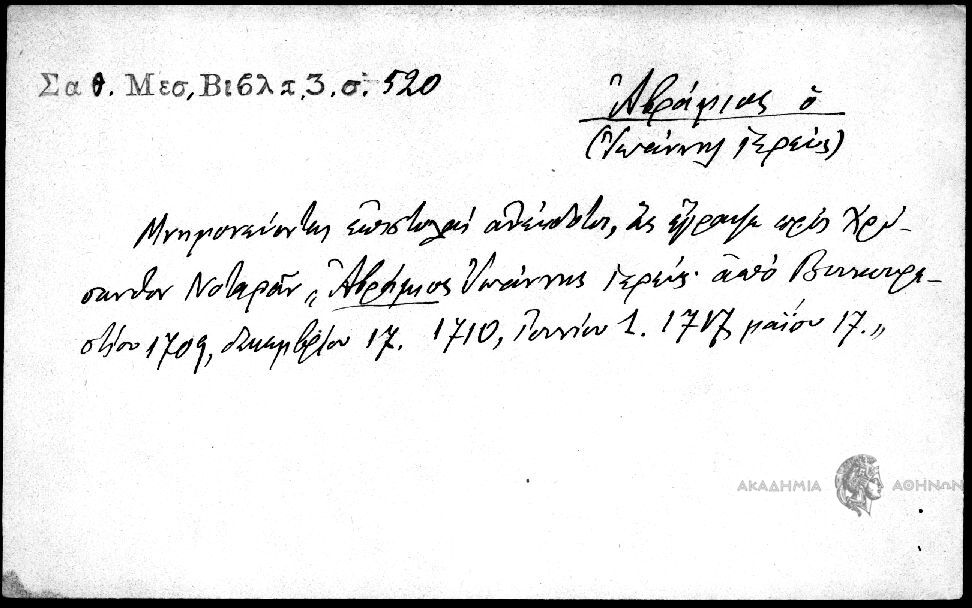 Σαθ. Μεσ. Βιβλτ. 3. σ. 520
Ἀβράμιος ὁ
(Ἰωάννης ἱερεύς)
Μνημονεύονται ἐπιστολαί ἀνέκδοτοι, ἅς ἔγραψε πρός Χρύ-
σανθον Νοταρᾶν „Ἀβράμιος Ἰωάννης ἱερεύς· ἀπό Βουκουρε-
στίου 1709, δεκεμβρίου 17. 1710, Ἰουνίου 1. 1717, μαΐου 17.„
ΑΚΑΔΗΜΙΑ ΑΘΗΝΩΝ